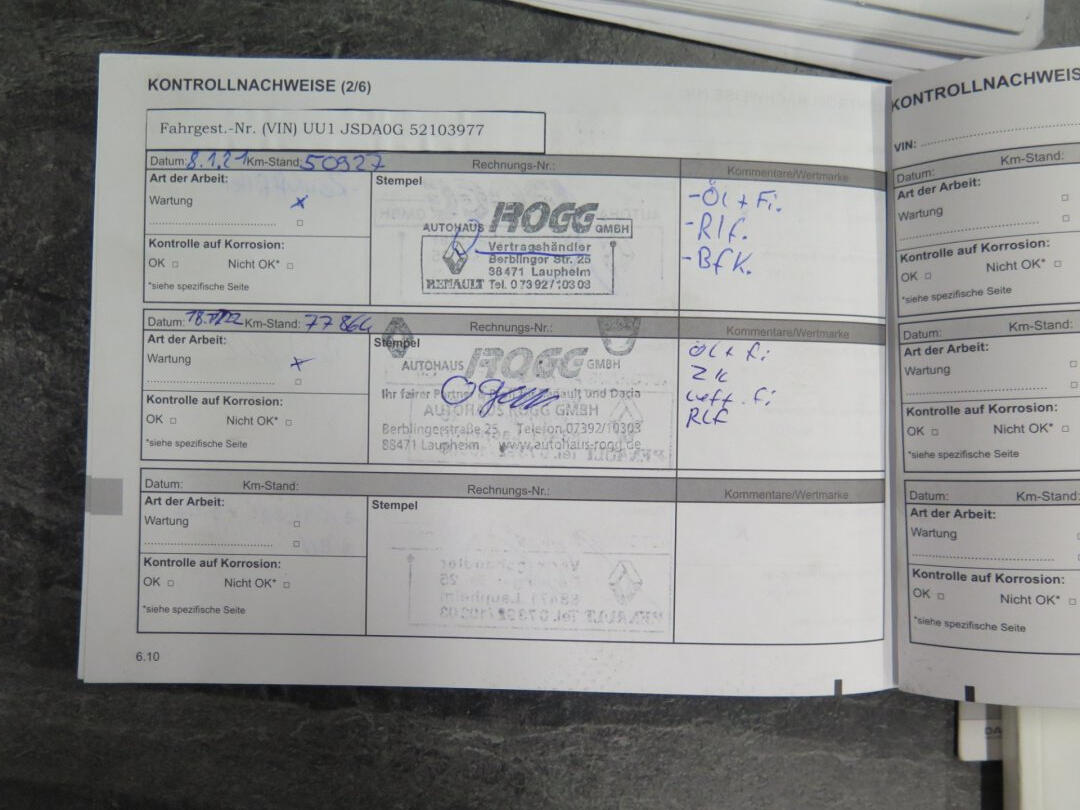 KONTROLLNACHWEISE (2/6)
Fahrgest.-Nr. (VIN) UU1 JSDA0G 52103977
Datum: 8.1.21 Km-Stand: 50927 Rechnungs-Nr.: Kommentare/Wertmarke
Art der Arbeit: Stempel
Wartung x
Kontrolle auf Korrosion:
OK Nicht OK*
*siehe spezifische Seite
AUTOHAUS ROGG GMBH
Vertragshändler
Berblinger Str. 25
88471 Laupheim
RENAULT Tel. 07392/10303
- Öl + Fi.
- Rlf.
- BfK.
Datum: Km-Stand: 77864 Rechnungs-Nr.: Kommentare/Wertmarke
Art der Arbeit: Stempel
Wartung x
Kontrolle auf Korrosion:
OK Nicht OK*
*siehe spezifische Seite
AUTOHAUS ROGG GMBH
Ihr fairer Partner Renault und Dacia
AUTOHAUS ROGG GMBH
Berblingerstraße 25 Telefon 07392/10303
88471 Laupheim www.autohaus-rogg.de
Öl + Fi
ZK
Luft. Fi
RLF
Datum: Km-Stand: Rechnungs-Nr.: Kommentare/Wertmarke
Art der Arbeit: Stempel
Wartung
Kontrolle auf Korrosion:
OK Nicht OK*
*siehe spezifische Seite
6.10
KONTROLLNACHWEIS
VIN:
Datum: Km-Stand:
Art der Arbeit:
Wartung
Kontrolle auf Korrosion:
OK Nicht OK*
*siehe spezifische Seite
Datum: Km-Stand:
Art der Arbeit:
Wartung
Kontrolle auf Korrosion:
OK Nicht OK*
*siehe spezifische Seite
Datum: Km-Stand:
Art der Arbeit:
Wartung
Kontrolle auf Korrosion:
OK Nicht OK*
*siehe spezifische Seite